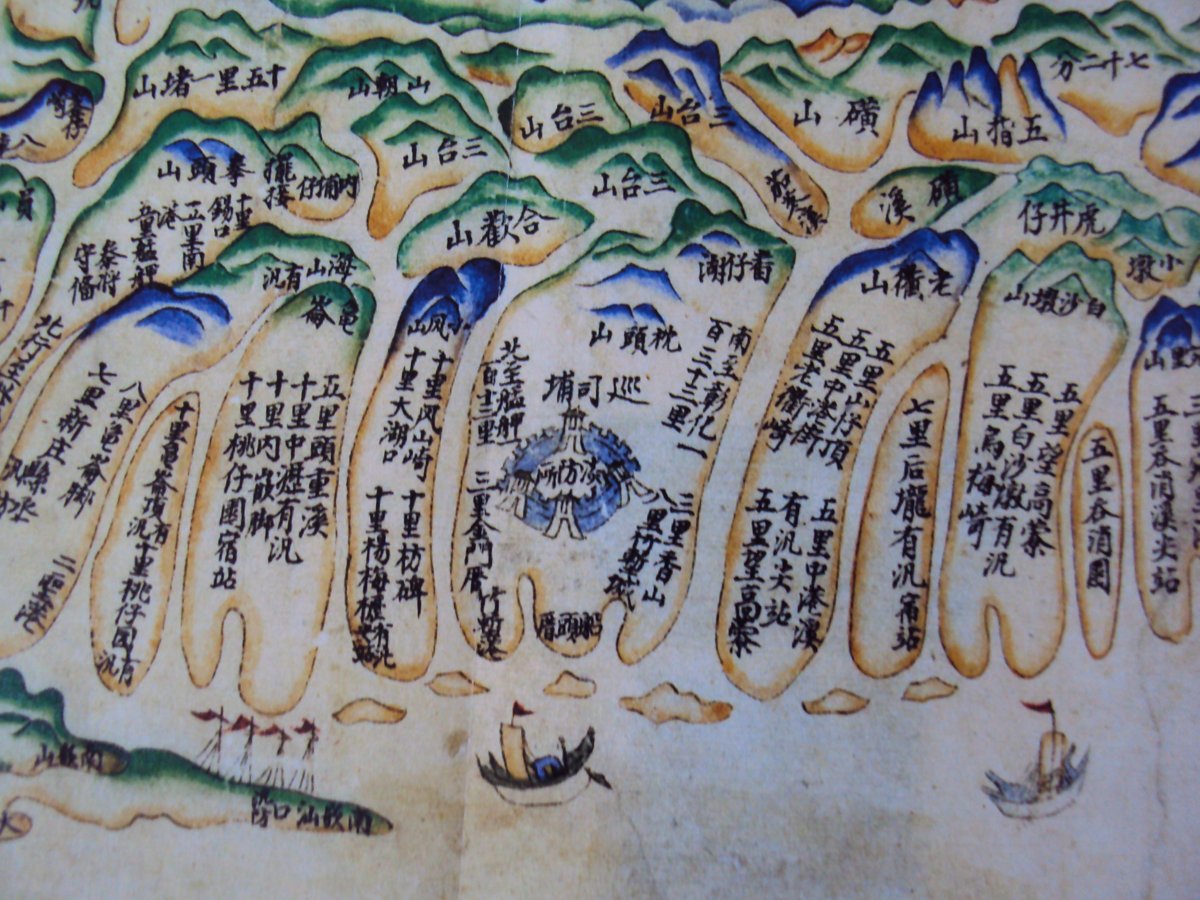 七十二分
五指山
磺山
三台山
三台山
三台山
三台山
山朝山
十五里一堵山
虎井仔
小墩
磺溪
合歡山
內埔仔
擺接
拳頭山
十里錫口
五里南港
艋舺
守備
海山有汛
龜崙
白沙墩山
老衢山
枕頭山
巡司埔
防所
南至彰化一
百三十三里
北至艋舺一
百十二里
三里香山
八里竹塹城
三里金門厝
竹塹港
船頭厝
小凤山
十里凤山崎
十里大湖口
十里枋碑
十里楊梅櫪有汛
五里頭重溪
十里中瀝有汛
十里內崁脚
十里桃仔園宿站
十里龜崙頂有汛十里桃仔園有汛
八里龜崙脚
七里新庄縣丞
五里山仔頂
五里中港街
五里老衢崎
五里中港溪
有汛尖站
五里望高寮
七里后壠有汛宿站
五里望高寮
五里白沙墩有汛
五里烏梅崎
五里吞消園
五里吞消溪尖站
南崁山
南崁汕口